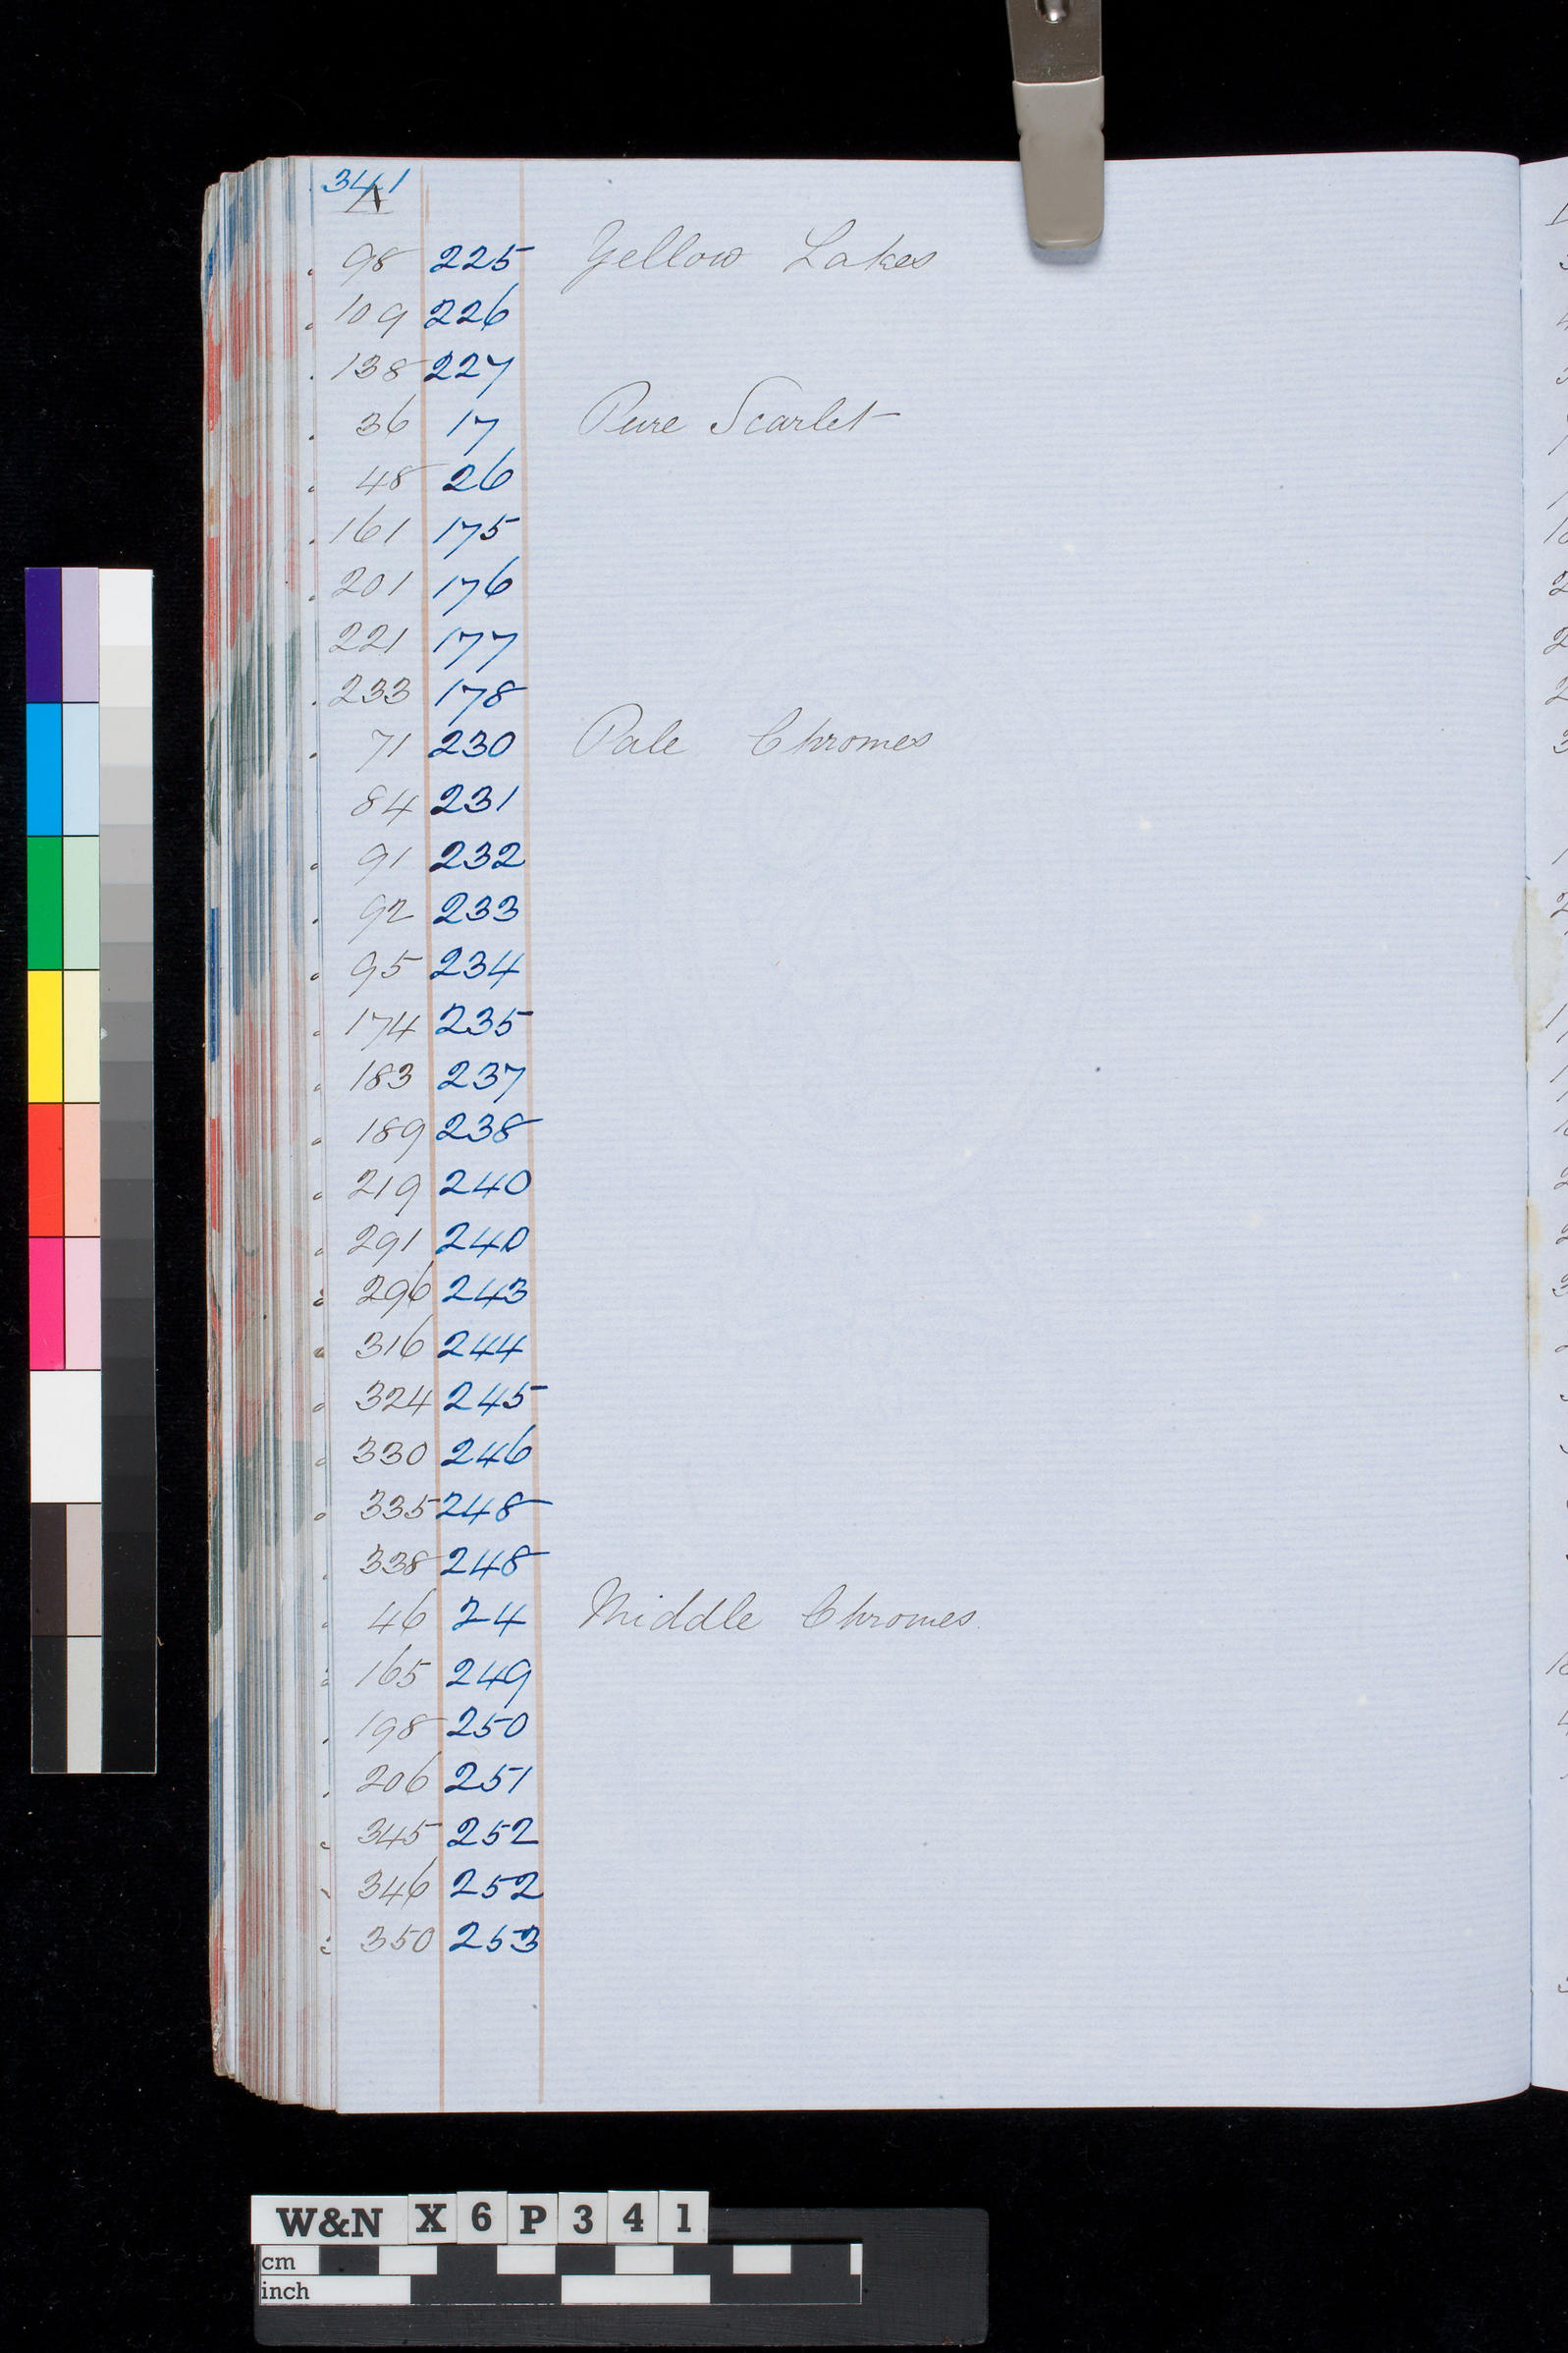 341
A
98 225 Yellow Lakes
109 226
138 227
36 17 Pure Scarlet
48 26
161 175
201 176
221 177
233 178
71 230 Pale Chromes
84 231
91 232
92 233
95 234
174 235
183 237
189 238
219 240
291 240
296 243
316 244
324 245
330 246
335 248
338 248
46 24 Middle Chromes
165 249
198 250
206 251
345 252
346 252
350 253
W&N X 6 P 3 4 1
cm
inch